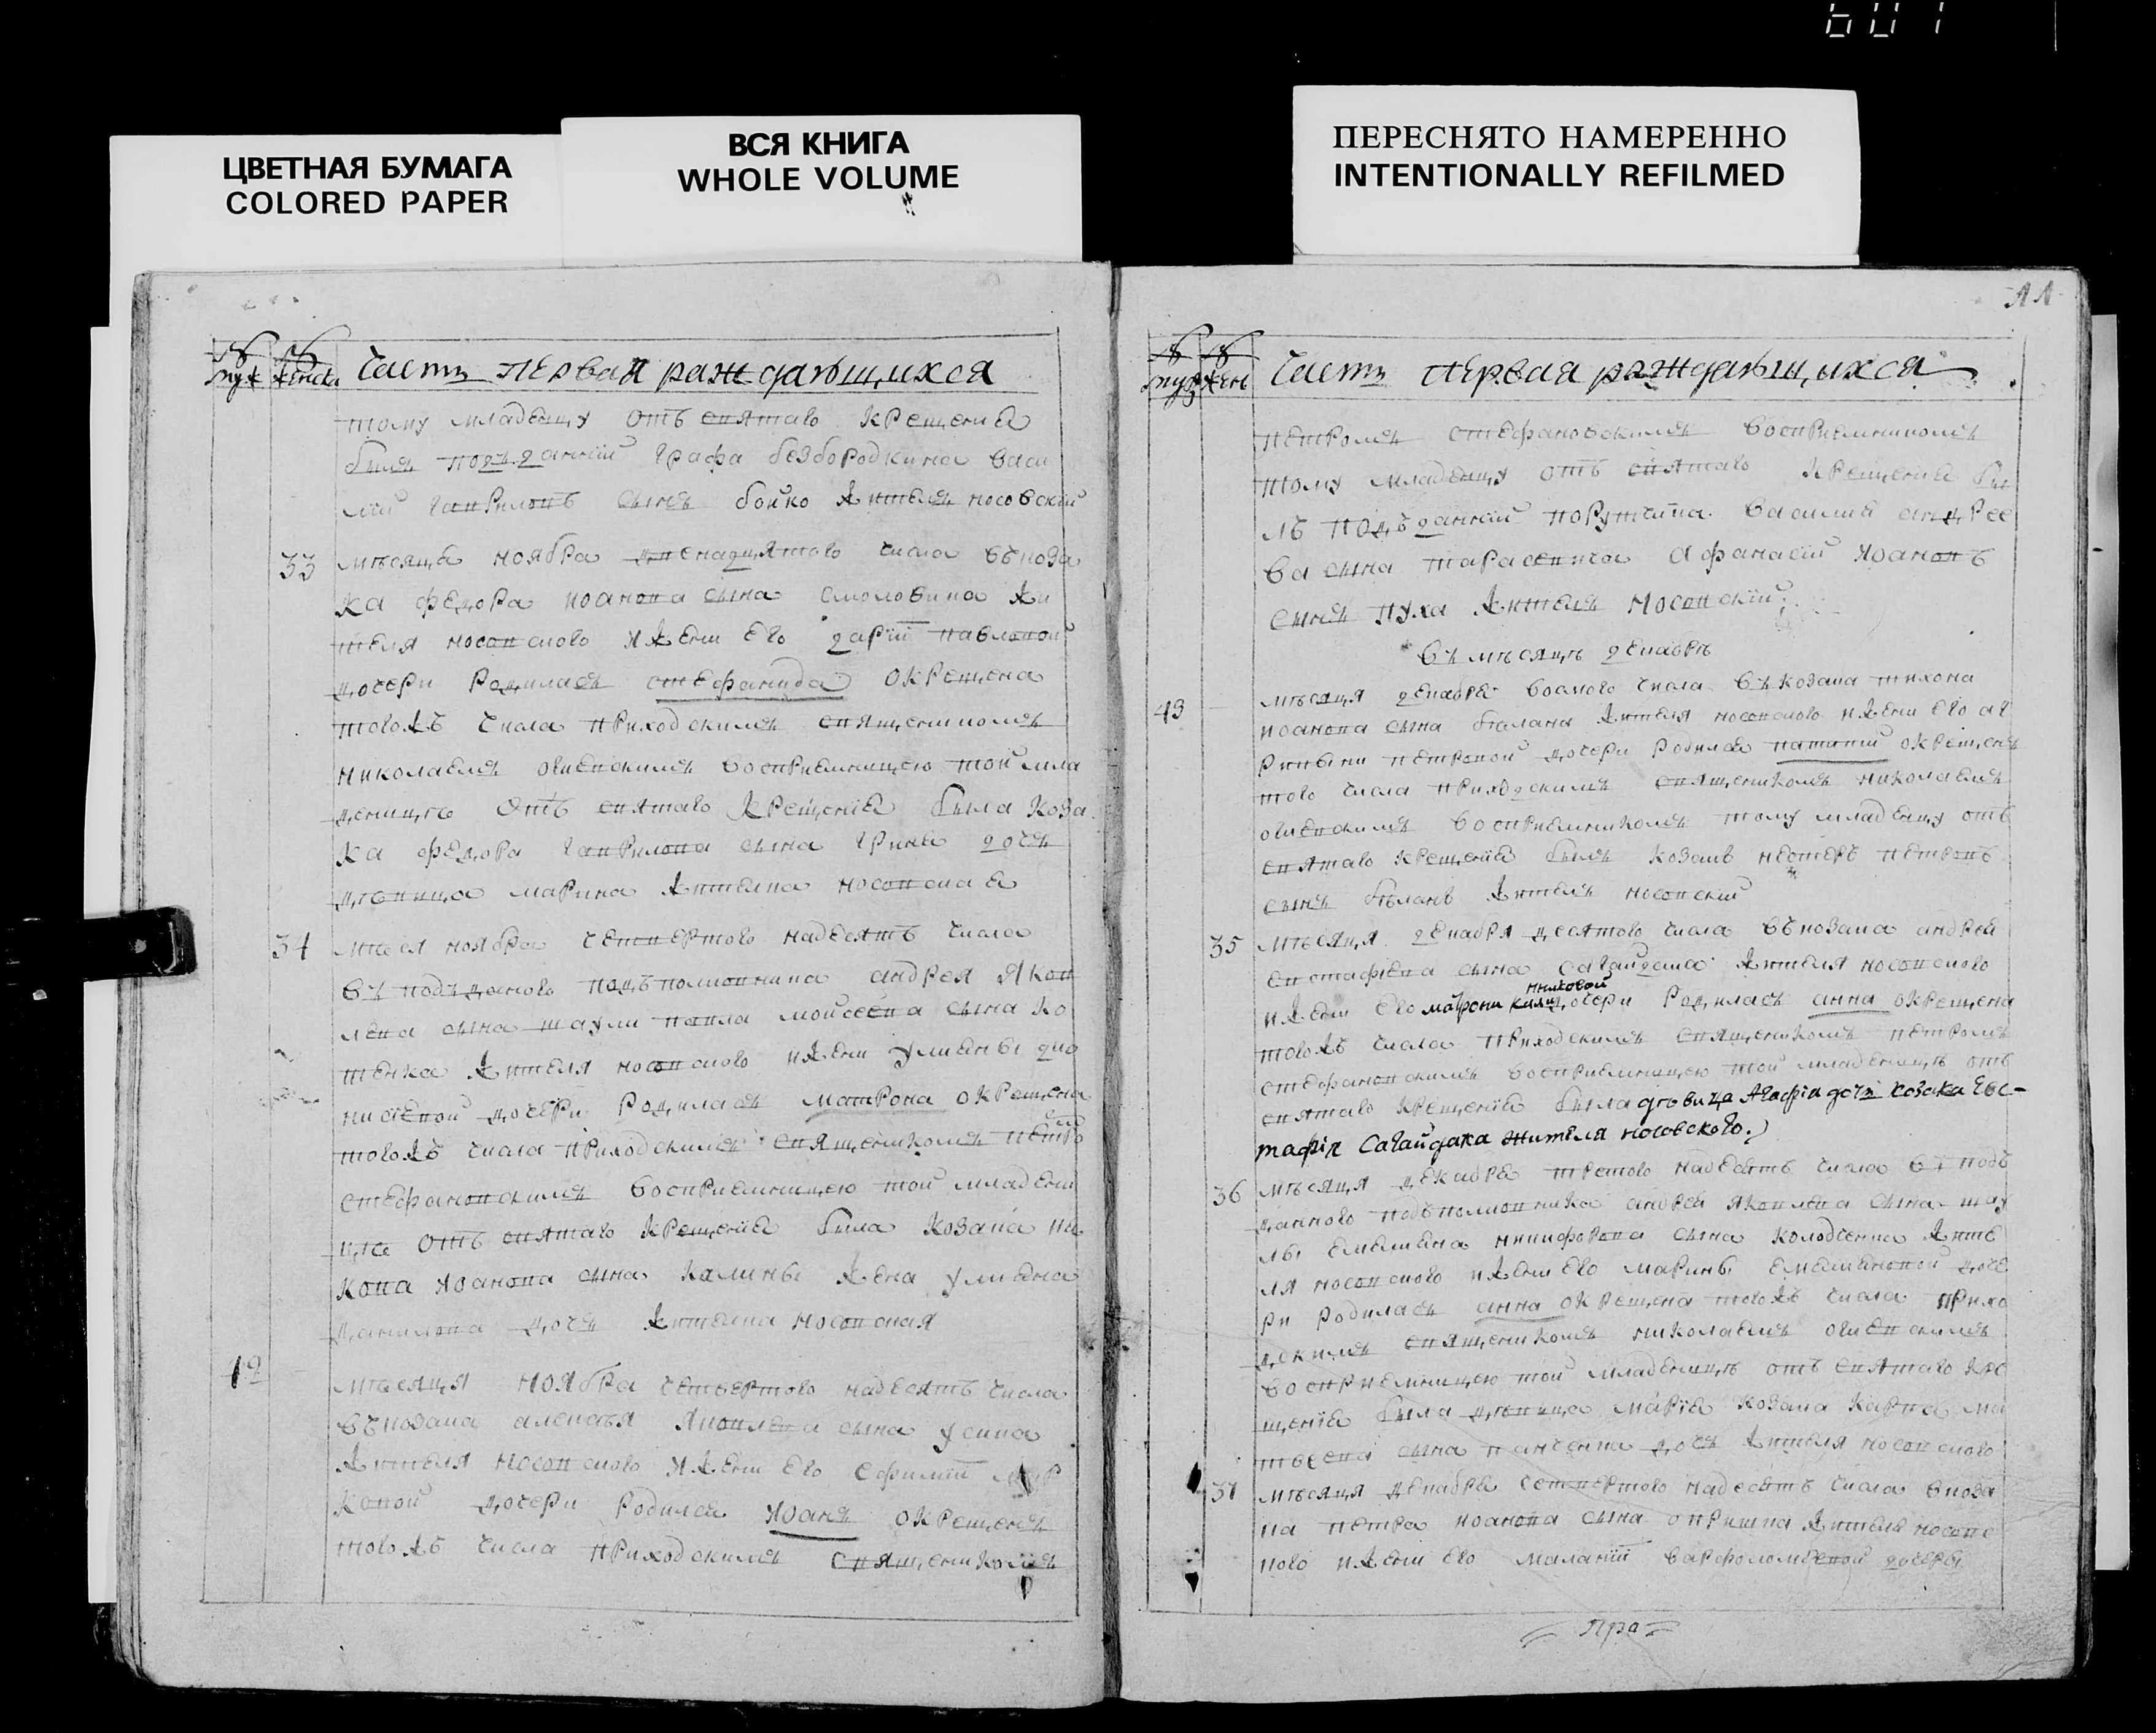 601
ЦВЕТНАЯ БУМАГА
COLORED PAPER
ВСЯ КНИГА
WHOLE VOLUME
ПЕРЕСНЯТО НАМЕРЕННО
INTENTIONALLY REFILMED
№ № Часть первая раждающихся
муж женска
тому младенцу отъ святаго крещения
былъ подъданний графа безбородкина васи
лий гавриловъ синъ бойко житель носовский
33 мѣсяца ноября двенадцятого числа въ коза
ка федора иоанова сина смоловика жи
теля носовского и жени его дарїи павловой
дочери родилась стефанида окрещена
тогожъ числа приходскимъ священикомъ
николаемъ огиевскимъ восприемницею той мла
деницѣ отъ святаго крещения была коза
ка федора гаврилова сина гриня дочь
дѣвица марина жителка носовская
34 мѣсяця ноября четвертого надесять числа
въ подъданого подъполковника андрея яков
лева сина шаули павла моисеева сина ко
тенка жителя носовского и жени улияны дио
нисїевой дочери родилась матрона окрещена
тогожъ числа приходскимъ священикомъ петро
стефановскимъ восприемницею той младени
це отъ святаго крещения была козака
кова иоанова сина калины жена улияна
данилова дочь жителка носовская
12 мѣсяця ноября четвертого надесять числа
въ козака алексѣя яковлева сина усика
жителя носовского и жени его ефимїи мар
ковой дочери родился иоанъ окрещенъ
тогожъ числа приходскимъ священикомъ
№ № Часть первая раждающихся
муж жен
петромъ стефановскимъ восприемникомъ
тому младенцу отъ святаго крещения бы
лъ подъданний поручика василия андрее
ва сина тарасевича афанасїй иоановъ
синъ пуха житель носовский
въ мѣсяцѣ декабрѣ
13 мѣсяця декабря восмого числа въ козака тихона
иоанова сина билана жителя носовского и жени его аг
рипини петровой дочери родился окрещенъ
того числа приходскимъ священикомъ николаемъ
огиевскимъ восприемникомъ тому младенцу отъ
святаго крещения былъ козакъ нестеръ петровъ
синъ биланъ житель носовский
35 мѣсяця декабря десятого числа въ козака андрея
евстафиева сина сагайдака жителя носовского
нниковой
и жени его матрени дочери родилась анна окрещена
тогожъ числа приходскимъ священикомъ петромъ
стефановскимъ восприемницею той младеницѣ отъ
святаго крещения была дѣвица Агафїя дочь козака Евс-
тафїя Сагайдака жителя носовского.
36 мѣсяця декабря третого надесять числа въ подъ
данного подъполковника андрея яковлева сина шау
лы емелияна никифорова сина колодченка жите
ля носовского и жени его марины емелияновой доче
ри родилась анна окрещена тогожъ числа прихо
дскимъ священикомъ николаемъ огиевскимъ
восприемницею той младеницѣ отъ святаго кре
щения была дѣвица марїя козака карпа ма
твеева сина панченка дочь жителя носовского
37 мѣсяця декабря четвертого надесять числа в коза
ка петра иоанова сина опришка жителя носовс
кого и жени его маланїи варфоломѣевой дочери
Пра